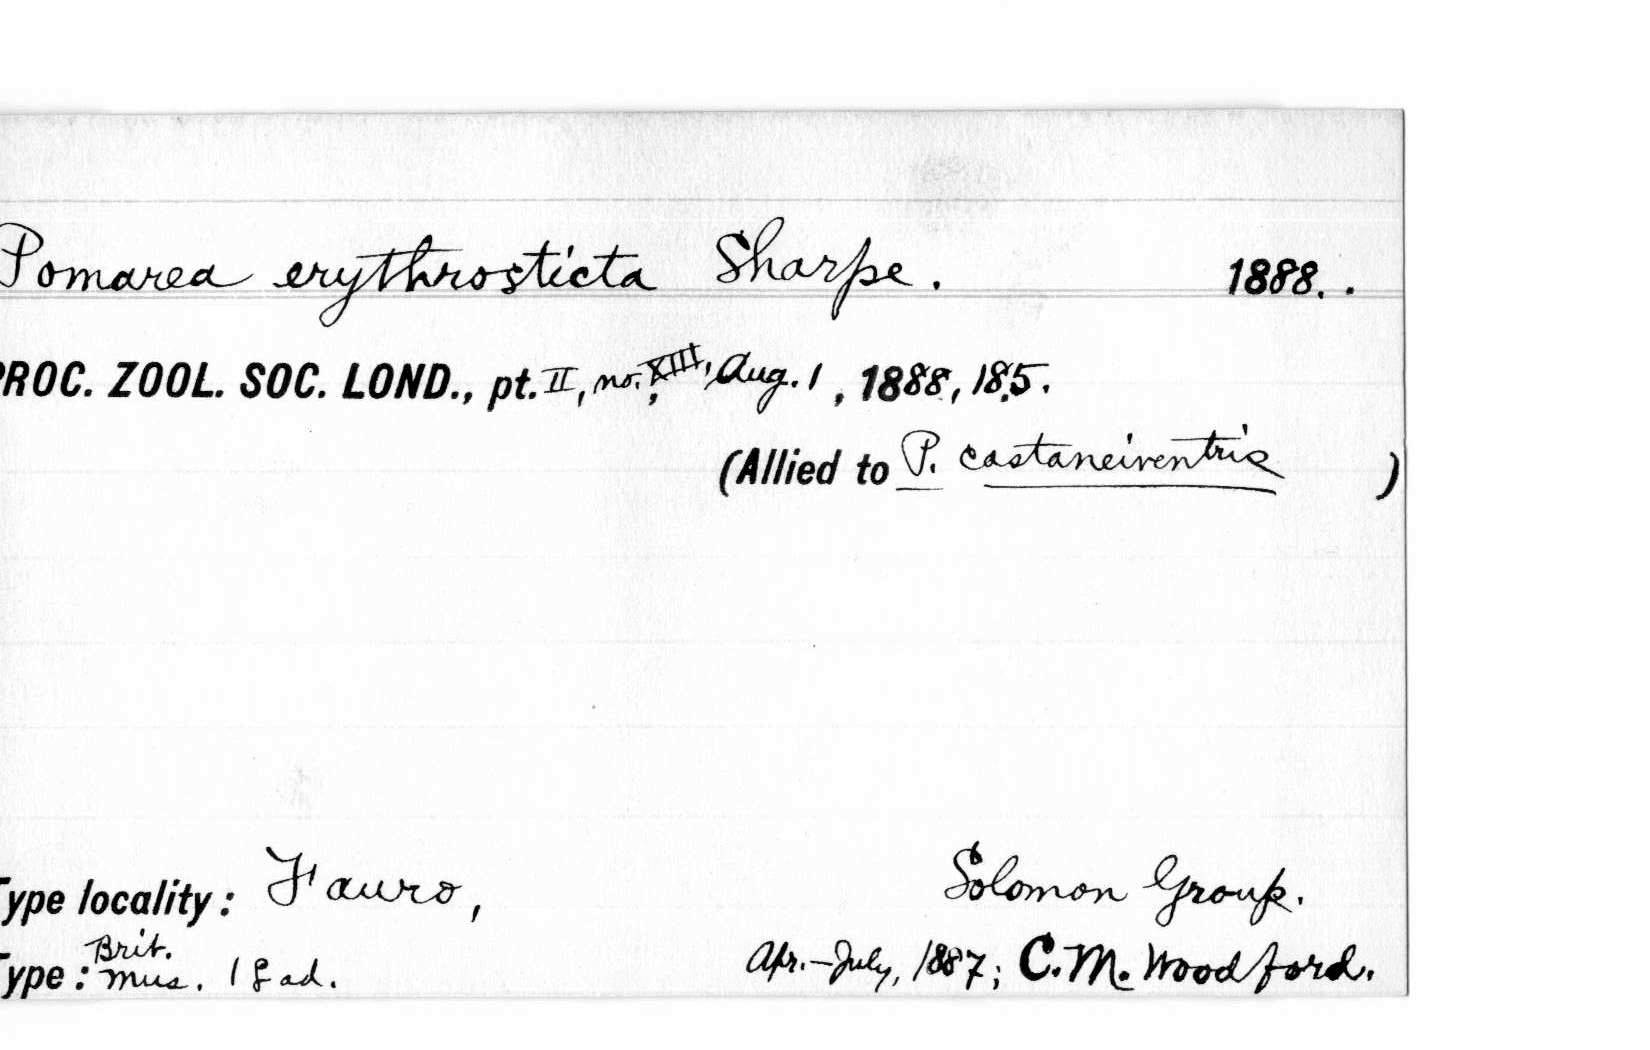 Pomarea erythrosticta Sharpe. 1888. .
PROC. ZOOL. SOC. LOND., pt. II, no. XIII, Aug. 1, 1888, 185.
(Allied to P. castaneiventris )
Type locality: Fauro, Solomon Group.
Type: Brit. Mus. 1 ad. Apr.-July, 1887; C. M. Woodford.